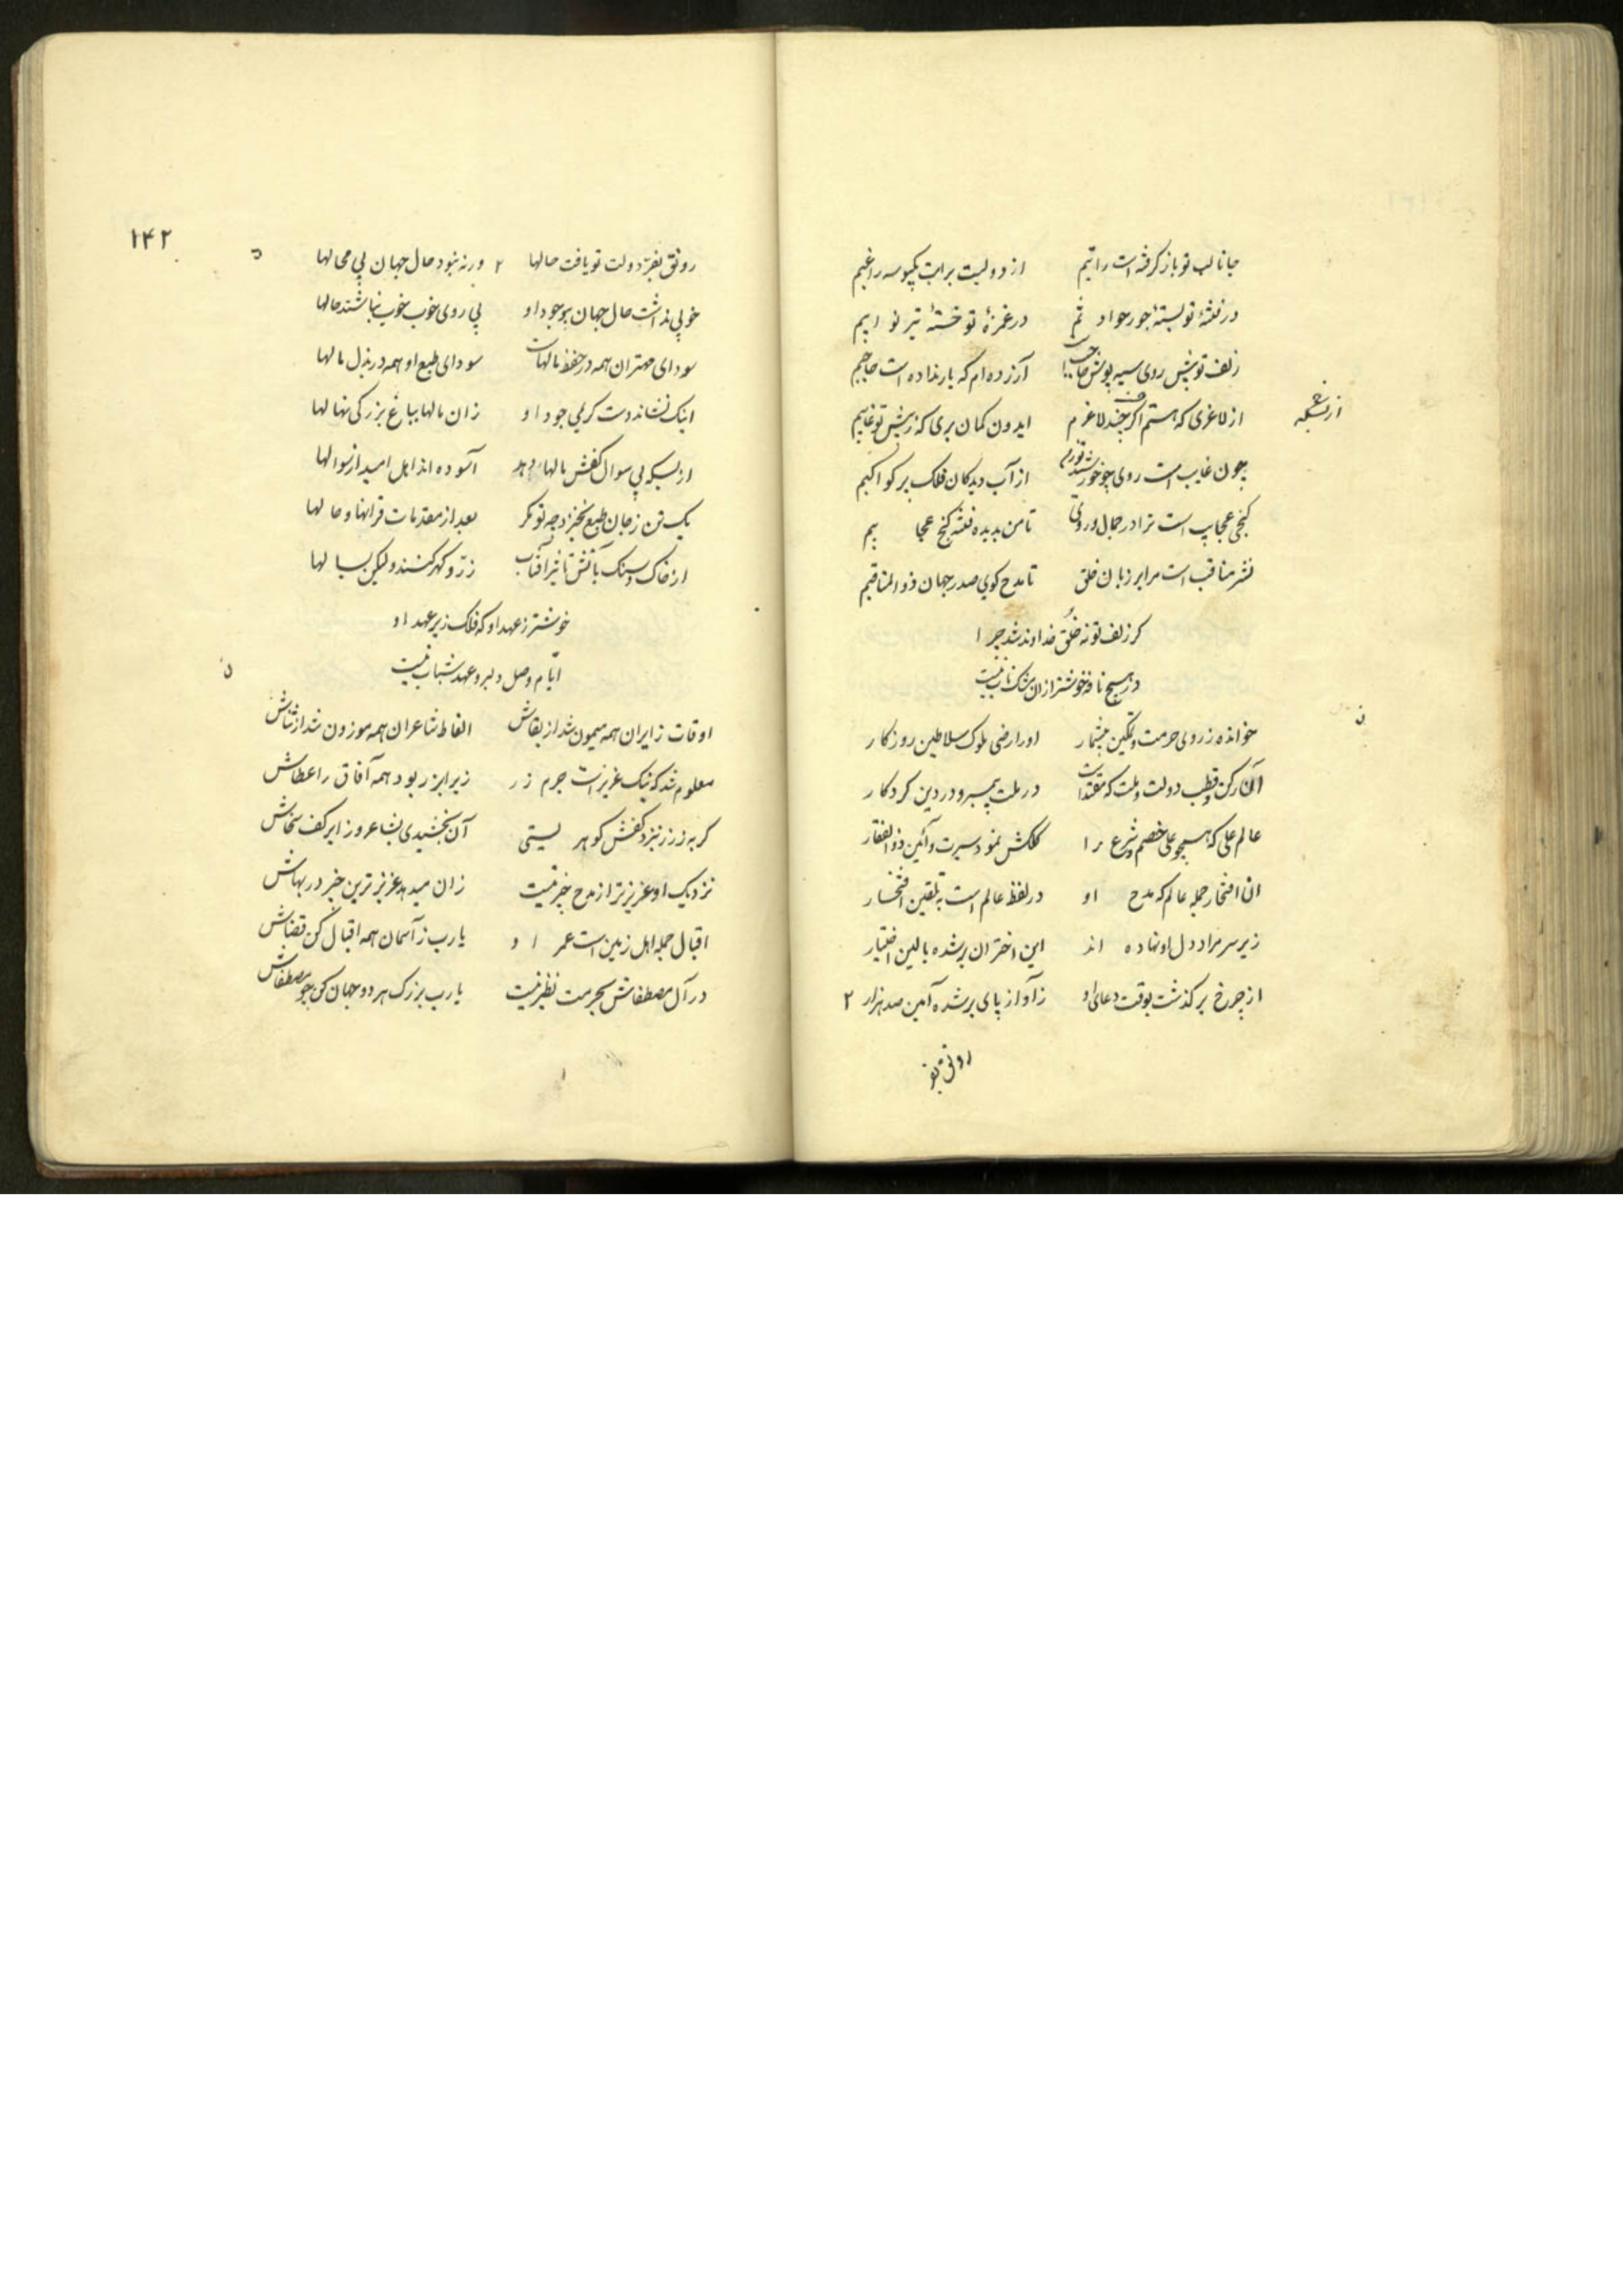 جانا لب تو باز گرفته است راتبم از دو لبت براتب یکبوسه راغبم
در فتنهٔ تو بستهٔ جور حوادثم در غمزهٔ تو خستهٔ تیر نوایبم
زلف تو پیش روی سیه پوش آزرده ام که بار نداده است حاجبم
از لاغری که هستم اگر لاغرم ایدون گمان بری که ز پیش تو غایبم
از بسکه
چون غایب است روی چو خورشید از آب دیدگان فلک بر کواکبم
گنجی عجایب است ترا در جمال و روی تا من بدیده فتنه گنج عجایبم
نشر مناقب است مرا بر زبان خلق تا مدح گوی صدر جهان ذوالمناقبم
کر زلف تو نه خلق خداوند شد چرا
در هیچ نافه خوشتر از آن مشک ناب نیست
خوانده ز روی حرمت و تمکین بیشمار او را رضی ملوک سلاطین روزکار
آن رکن و قطب دولت و ملت که مقتداست در ملت پیمبر و در دین کردکار
عالم علی که همچو علی خصم شرع را کلکش نمود سیرت و آئین ذوالفقار
ان افتخار جمله عالم که مدح او در لفظ عالم است به تلقین افتخار
زیر سر مراد دل او نهاده اند این اختران بر شده بالین اختیار
از چرخ بر کذشت بوقت دعای او ز آواز پای بر شده آمین صد هزار ۲
رونق بفر
۱۴۲
رونق بفر دولت تو یافت حالها ۲ ورنه نبود حال جهان بی محالها
خوبی نداشت حال جهان بی وجود او بی روی خوب خوب نباشند حالها
سودای مهتران همه در حفظ مالهاست سودای طبع او همه در بذل مالها
اینک نشاند دست کریمی جود او زان مالها بباغ بزرکی نهالها
از بسکه بی سوال کفش مالها دهد آسوده اند اهل امید از سوالها
یک تن ز جان طبع نخیزد چه تو مکر بعد از مقدمات قرانها و حالها
از خاک و سنک باتش تاثیر آفتاب زر و کهر کنند ولیکن بسالها
خوشتر ز عهد او که فلک زیر عهد او
ایام وصل دلبر و عهد شباب نیست
اوقات زایران همه میمون شد از بقاش الفاظ شاعران همه موزون شد از ثناش
معلوم شد که نیک عزیز است جرم زر زیرا بزر ربود همه آفاق را عطاش
کر به ز زر بنزد کفش کوهر یستی آن بخشیدی بشاعر و زایر کف سخاش
نزدیک او عزیزتر از مدح چیز نیست زان میدهد عزیزترین چیز در بهاش
اقبال جمله اهل زمین است عمر او یارب ز آسمان همه اقبال کن قضاش
در آل مصطفاش بحرمت نظیر نیست یارب بزرک هر دو جهان کن چو مصطفاش